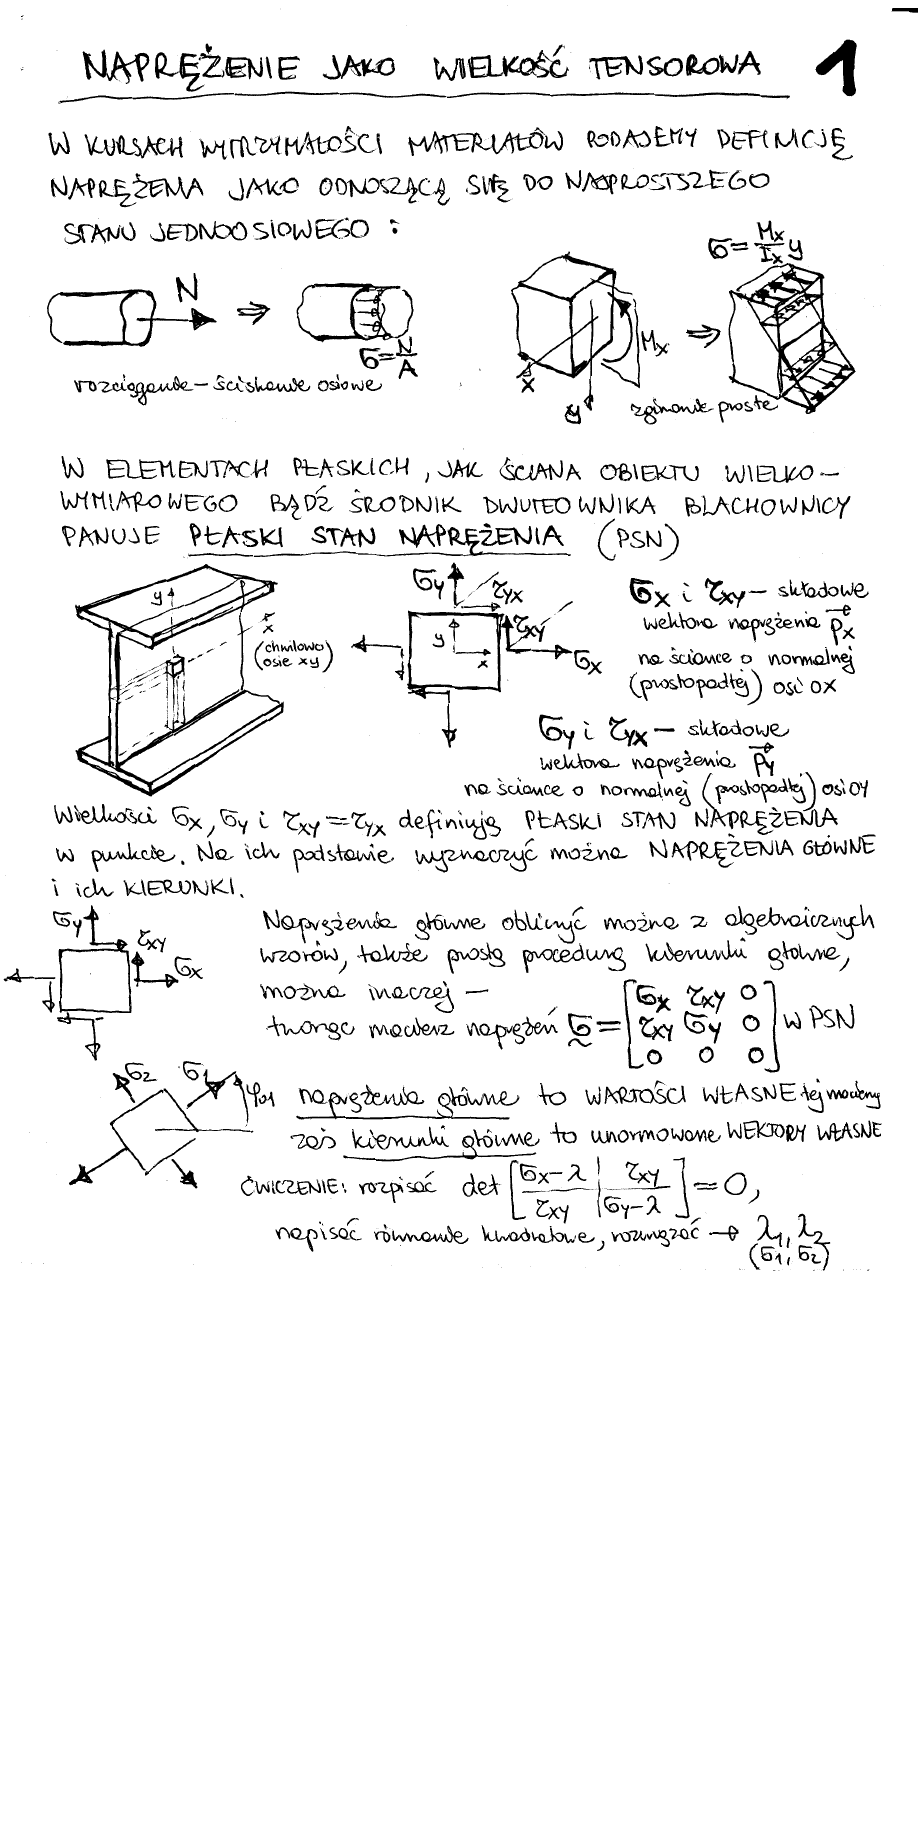 NAPRĘŻENIE JAKO WIELKOŚĆ TENSOROWA 1
W KURSACH WYTRZYMAŁOŚCI MATERIAŁÓW PODAJEMY DEFINICJĘ
NAPRĘŻENIA JAKO ODNOSZĄCĄ SIĘ DO NAJPROSTSZEGO
STANU JEDNOOSIOWEGO :
N ⇒ σ = N/A
rozciąganie – ściskanie osiowe
x y Mx ⇒ σ = Mx/Ix y
zginanie proste
W ELEMENTACH PŁASKICH, JAK ŚCIANA OBIEKTU WIELKO–
WYMIAROWEGO BĄDŹ ŚRODNIK DWUTEOWNIKA BLACHOWNICY
PANUJE PŁASKI STAN NAPRĘŻENIA (PSN)
y x
(chwilowo
osie xy)
σy τyx
τxy
y x σx
σx i τxy – składowe
wektora naprężenia px
na ściance o normalnej
(prostopadłej) osi OX
σy i τyx – składowe
wektora naprężenia py
na ściance o normalnej (prostopadłej) osi OY
Wielkości σx, σy i τxy = τyx definiują PŁASKI STAN NAPRĘŻENIA
w punkcie. Na ich podstawie wyznaczyć można NAPRĘŻENIA GŁÓWNE
i ich KIERUNKI.
σy τxy σx
Naprężenia główne obliczyć można z algebraicznych
wzorów, także prostą procedurą kierunki główne,
można inaczej –
tworząc macierz naprężeń σ = [σx τxy 0
τxy σy 0
0 0 0] W PSN
σ2 σ1 φ01
naprężenia główne to WARTOŚCI WŁASNE tej macierzy
zaś kierunki główne to unormowane WEKTORY WŁASNE
ĆWICZENIE: rozpisać det [σx–λ | τxy
τxy | σy–λ] = 0,
napisać równanie kwadratowe, rozwiązać → λ1, λ2
(σ1, σ2)